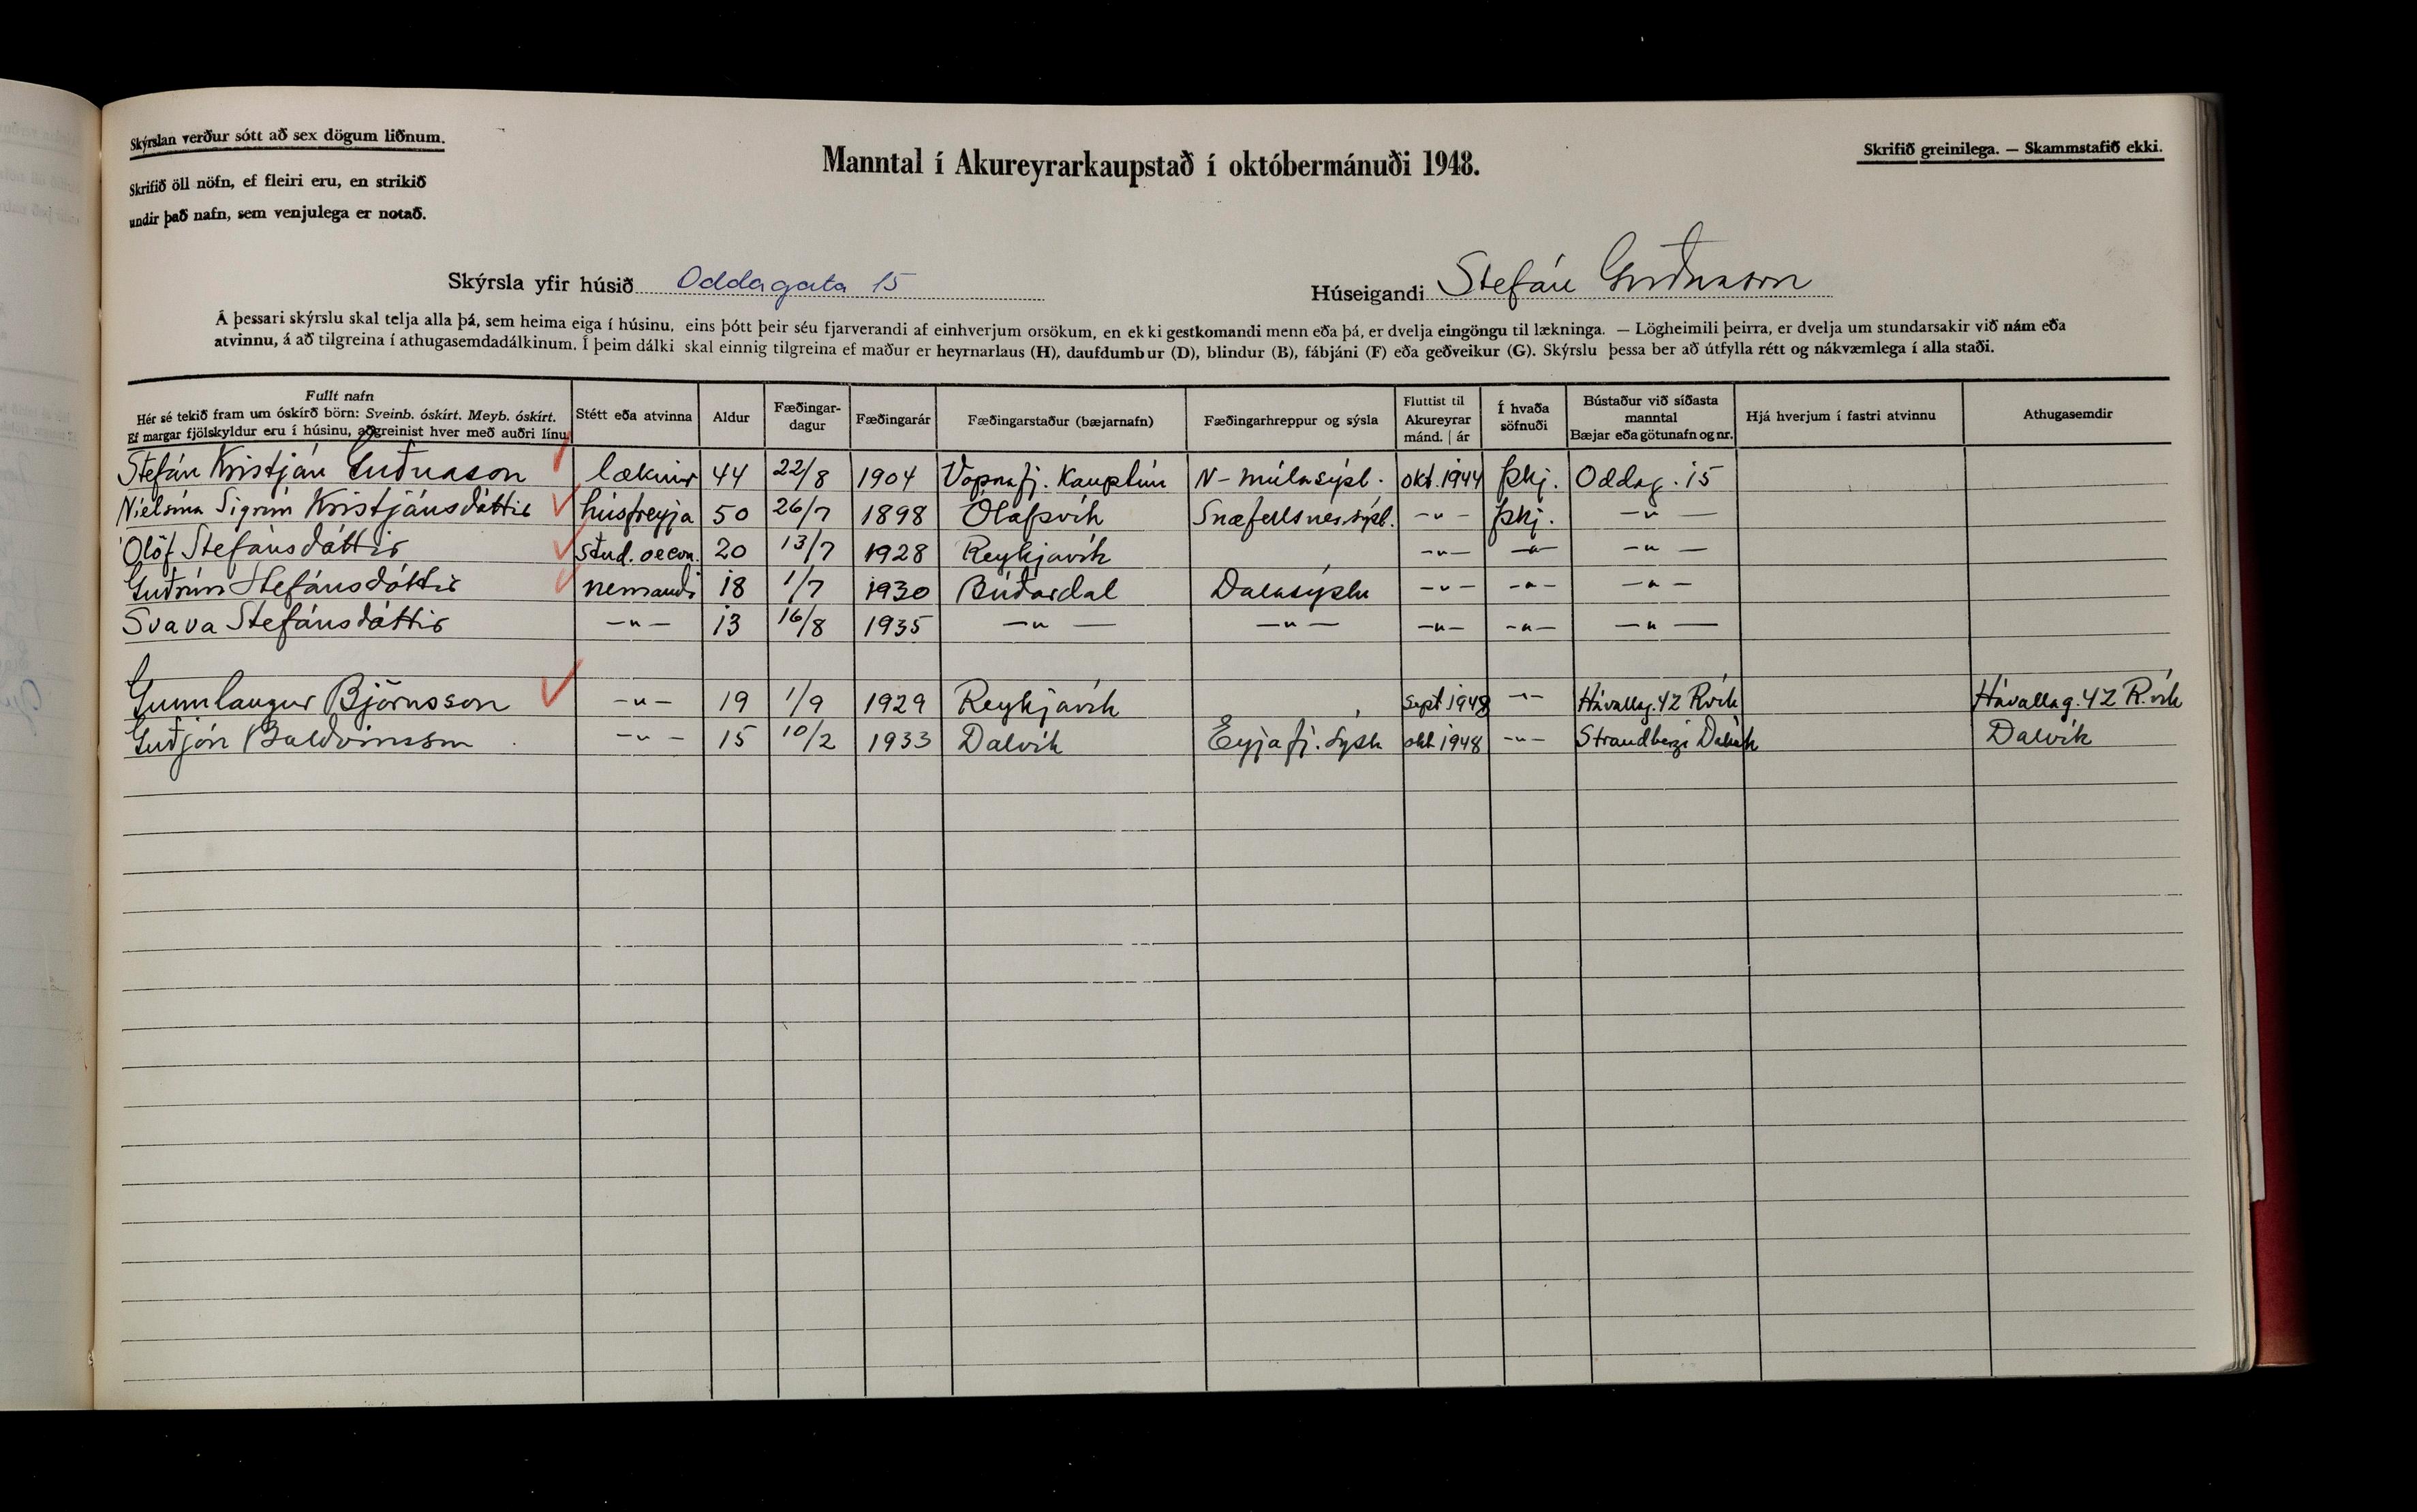 Skýrslan verður sótt að sex dögum liðnum.
Skrifið öll nöfn, ef fleiri eru, en strikið
undir það nafn, sem venjulega er notað.
Manntal í Akureyrarkaupstað í októbermánuði 1948.
Skrifið greinilega. — Skammstafið ekki.
Skýrsla yfir húsið Oddagata 15
Húseigandi Stefán Guðnason
Á þessari skýrslu skal telja alla þá, sem heima eiga í húsinu, eins þótt þeir séu fjarverandi af einhverjum orsökum, en ekki gestkomandi menn eða þá, er dvelja eingöngu til lækninga. — Lögheimili þeirra, er dvelja um stundarsakir við nám eða
atvinnu, á að tilgreina í athugasemdadálkinum. Í þeim dálki skal einnig tilgreina ef maður er heyrnarlaus (H), daufdumbur (D), blindur (B), fábjáni (F) eða geðveikur (G). Skýrslu þessa ber að útfylla rétt og nákvæmlega í alla staði.
Fullt nafn
Hér sé tekið fram um óskírð börn: Sveinb. óskírt. Meyb. óskírt.
Ef margar fjölskyldur eru í húsinu, aðgreinist hver með auðri línu.
Stétt eða atvinna
Aldur
Fæðingar-
dagur
Fæðingarár
Fæðingarstaður (bæjarnafn)
Fæðingarhreppur og sýsla
Fluttist til
Akureyrar
mánd. | ár
Í hvaða
söfnuði
Bústaður við síðasta
manntal
Bæjar eða götunafn og nr.
Hjá hverjum í fastri atvinnu
Athugasemdir
Stefán Kristján Guðnason læknir 44 22/8 1904 Vopnafj. Kauptún N-múlasýsl. okt. 1944 þkj. Oddag. 15
Níelsína Sigrún Kristjánsdóttir húsfreyja 50 26/7 1898 Ólafsvík Snæfellsnessýsl. -"- þkj. -"-
Ólöf Stefánsdóttir stud. oecon. 20 13/7 1928 Reykjavík -"- -"- -"-
Guðrún Stefánsdóttir nemandi 18 1/7 1930 Búðardal Dalasýslu -"- -"- -"-
Svava Stefánsdóttir -"- 13 16/8 1935 -"- -"- -"- -"- -"-
Gunnlaugur Björnsson -"- 19 1/9 1929 Reykjavík sept 1948 -"- Hávallag. 42 Rvík Hávallag. 42 R.vík
Guðjón Baldvinsson -"- 15 10/2 1933 Dalvík Eyjafj. sýsla okt. 1948 -"- Strandbergi Dalvík Dalvík